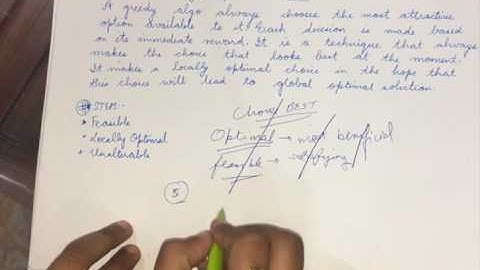 A greedy algo always choose the most attractive
option available to it. Each decision is made based
on its immediate reward. It is a technique that always
makes the choice that looks best at the moment.
It makes a locally optimal choice in the hope that
this choice will lead to global optimal solution.
STEM:-
* Feasible
* Locally Optimal
* Unalterable
BEST
Optimal → most beneficial
feasible → satisfying
5